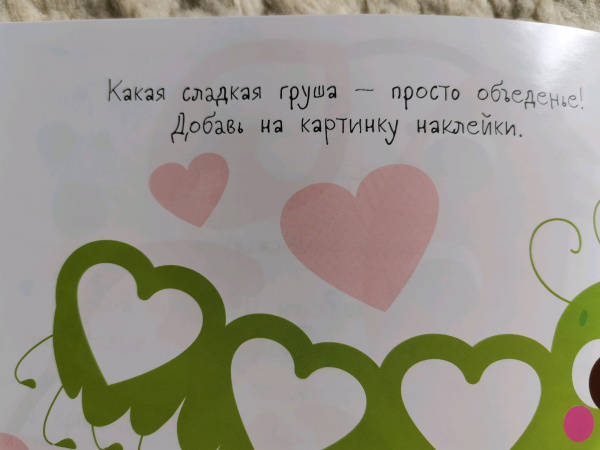 Какая сладкая груша — просто объеденье!
Добавь на картинку наклейки.